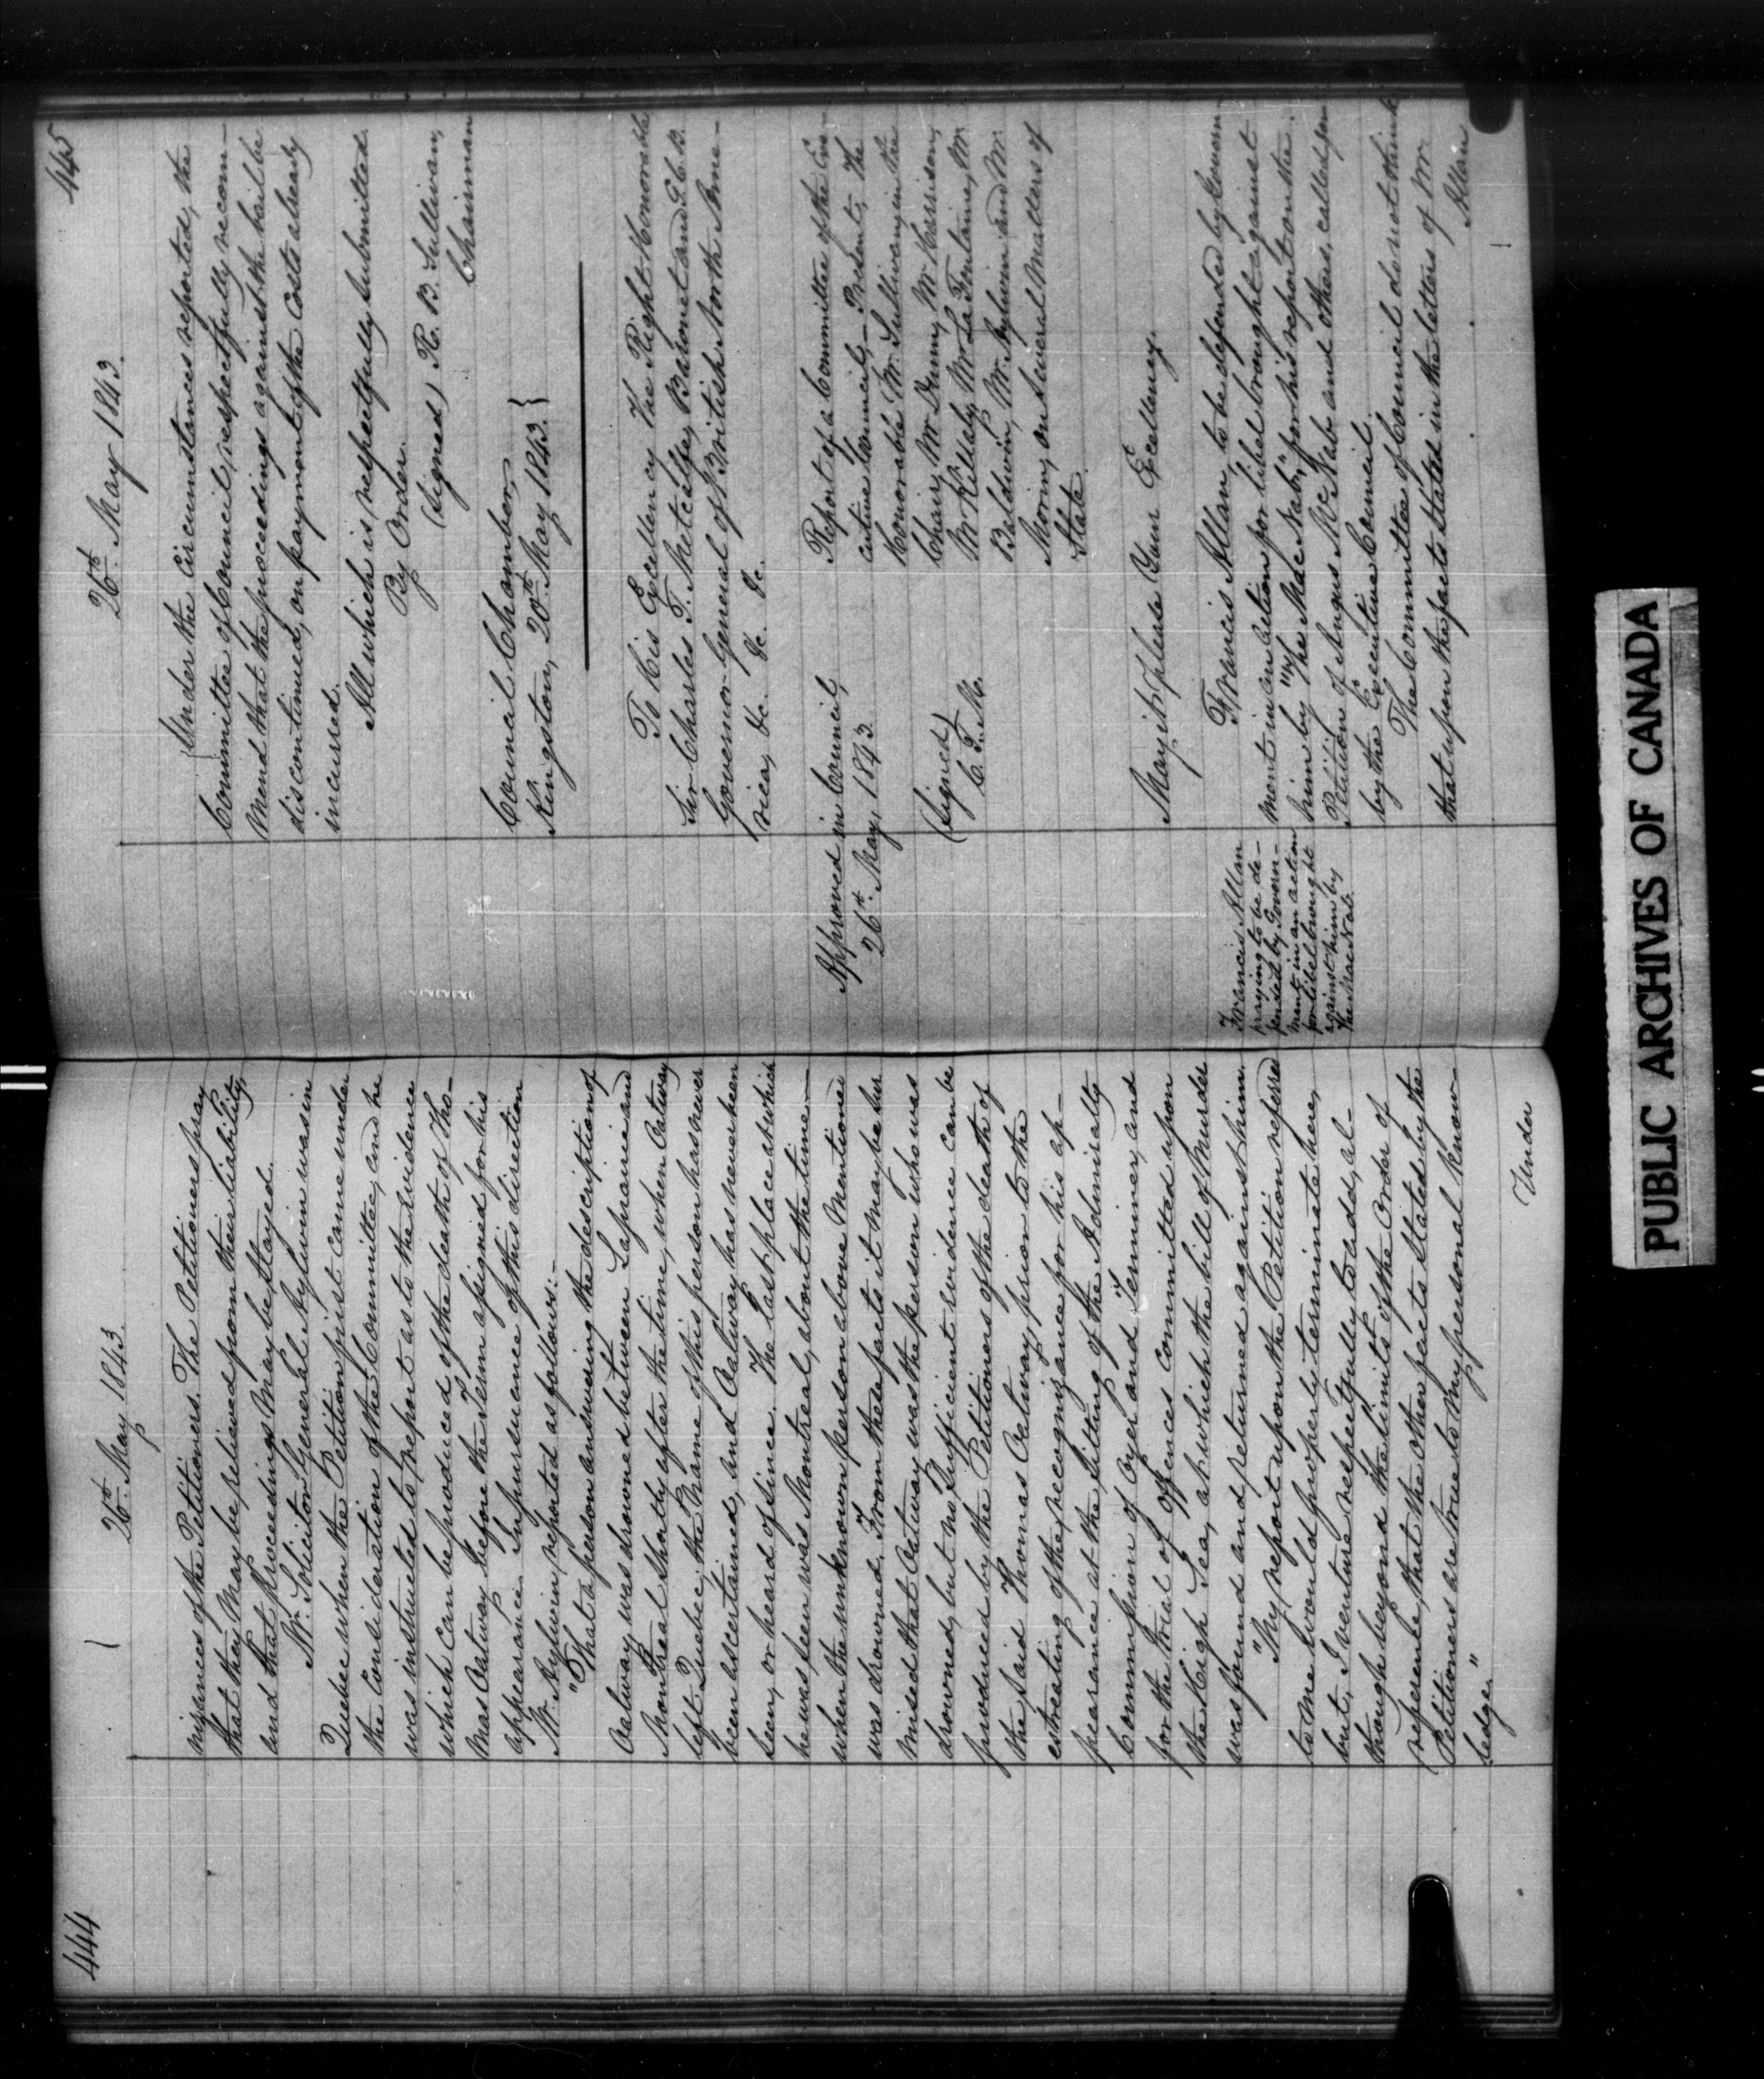 444
26th May 1843.
nizances of the Petitioners. The Petitioners pray
that they may be relieved from their liability,
and that proceedings may be stayed.
Mr. Solicitor General Aylwin was in
Quebec when the Petition first came under
the consideration of the Committee, and he
was instructed to report as to the evidence
which can be produced of the death of Tho-
mas Oatway before the Term assigned for his
appearance. In pursuance of this direction
Mr. Aylwin reported as follows:-
"That a person answering the description of
Oatway, was drowned between Laprairie and
Montreal shortly after the time, when Oatway
left Quebec; the name of this person has never
been ascertained, and Oatway has never been
seen, or heard of since. The last place at which
he was seen was Montreal, about the time
when the unknown person above mentioned
was drowned. From these facts it may be sur
mised that Oatway was the person who was
drowned, but no sufficient evidence can be
produced by the Petitioners of the death of
the said Thomas Oatway, prior to the
estreating of the recognizance for his ap-
pearance at the sitting of the Admiralty
Commission of Oyer and Terminer, and
for the trial of offences committed upon
the High Sea, at which the bill of Murder
was found and returned against him.
"My report upon the Petition referred
to me would properly terminate here,
but, I venture respectfully to add, al-
though beyond the limits of the Order of
reference, that the other facts stated by the
Petitioners are true to my personal know-
ledge."
Under
445
26th May 1843.
Under the circumstances reported, the
Committee of Council, respectfully recom-
mend that the proceedings against the bail be
discontinued, on payment of the costs already
incurred.
All which is respectfully submitted.
By Order.
(signed) R. B. Sullivan,
Chairman
Council Chamber,
Kingston, 20th May 1843.}
To His Excellency The Right Honorable
Sir Charles T. Metcalfe, Baronet and G.C.B.
Governor General of British North Ame-
rica, &c. &c. &c.
Approved in Council,
26th May, 1843.
(signed)
C. T. M.
Report of a Committee of the Exe-
cutive Council,- Present, The
Honorable Mr. Sullivan, in the
Chair, Mr. Dunn, Mr. Harrison,
Mr. Killaly, Mr. La Fontaine, Mr.
Baldwin, Mr. Aylwin and Mr.
Morin, on several Matters of
State.
May it please Your Excellency.
Francis Allan
praying to be de-
fended by Govern-
ment, in an action
for libel brought
against him by
the MacNab.
Francis Allan, to be defended by Govern
ment in an action for libel brought against
him by "The MacNab," for his report on the
Petition of Angus McNab and others, called for
by the Executive Council.
The Committee of Council do not think
that upon the facts stated in the letters of Mr.
Allan
PUBLIC ARCHIVES OF CANADA